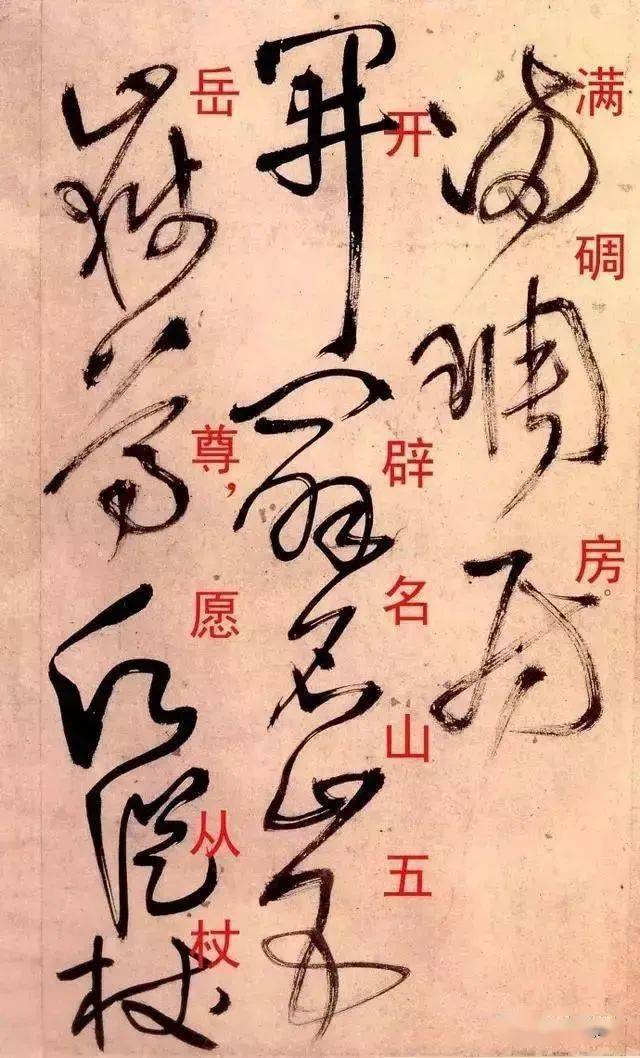 满碉房。
开辟名山五
岳尊，愿从杖